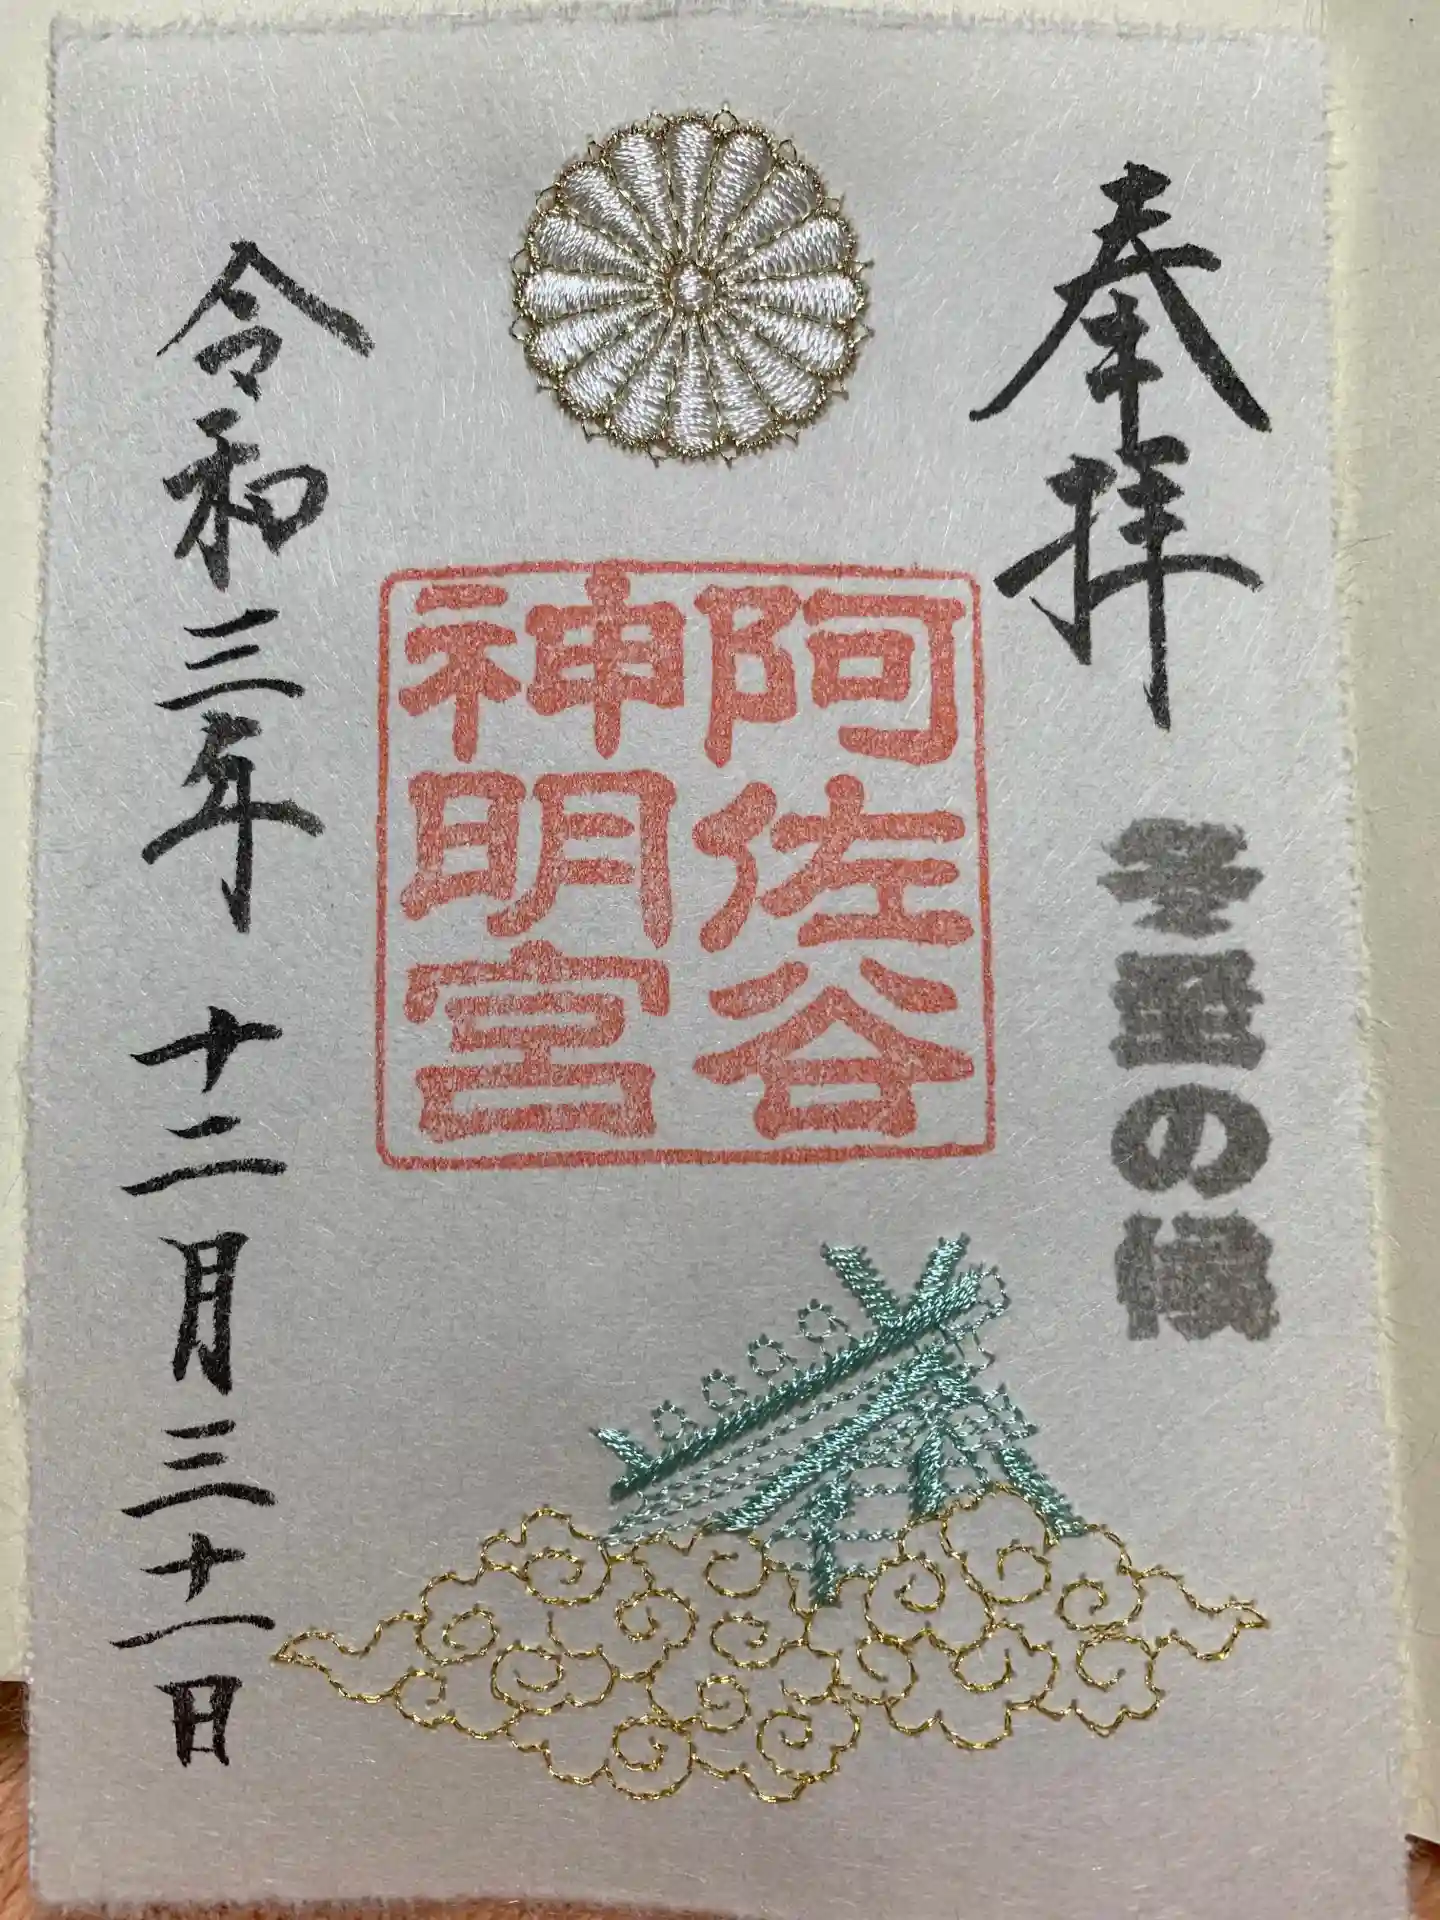 奉拝
冬至の候
阿佐谷
神明宮
令和三年 十二月三十一日